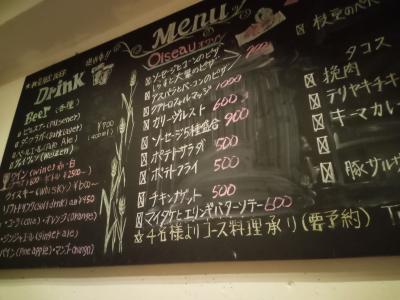 Menu
Oiseau
Drink
Beer (各種)
ピルスナー (Pilsener)
¥700
ヴァイツェン (Weizen)
ワイン (wine) 赤・白
ウイスキー (Whisky) ¥600~
ソフトドリンク (soft drink) all ¥450
・コーラ (cola) ・オレンジ (Orange)
・ジンジャエール (Ginger ale)
パイン (Pine apple)・マンゴ (mango)
ソーセージとコーンのピザ
アスパラとベーコンのピザ
クアトロフォルマッジ 1000
ガーリックトースト 600
ソーセージ5種盛合 900
ポテトサラダ 500
ポテトフライ 500
チキンナゲット 500
マイタケとエリンギバターソテー 600
☆4名様よりコース料理承り (要予約)
タコス
挽肉
テリヤキチキ
キーマカレ
豚サルサ